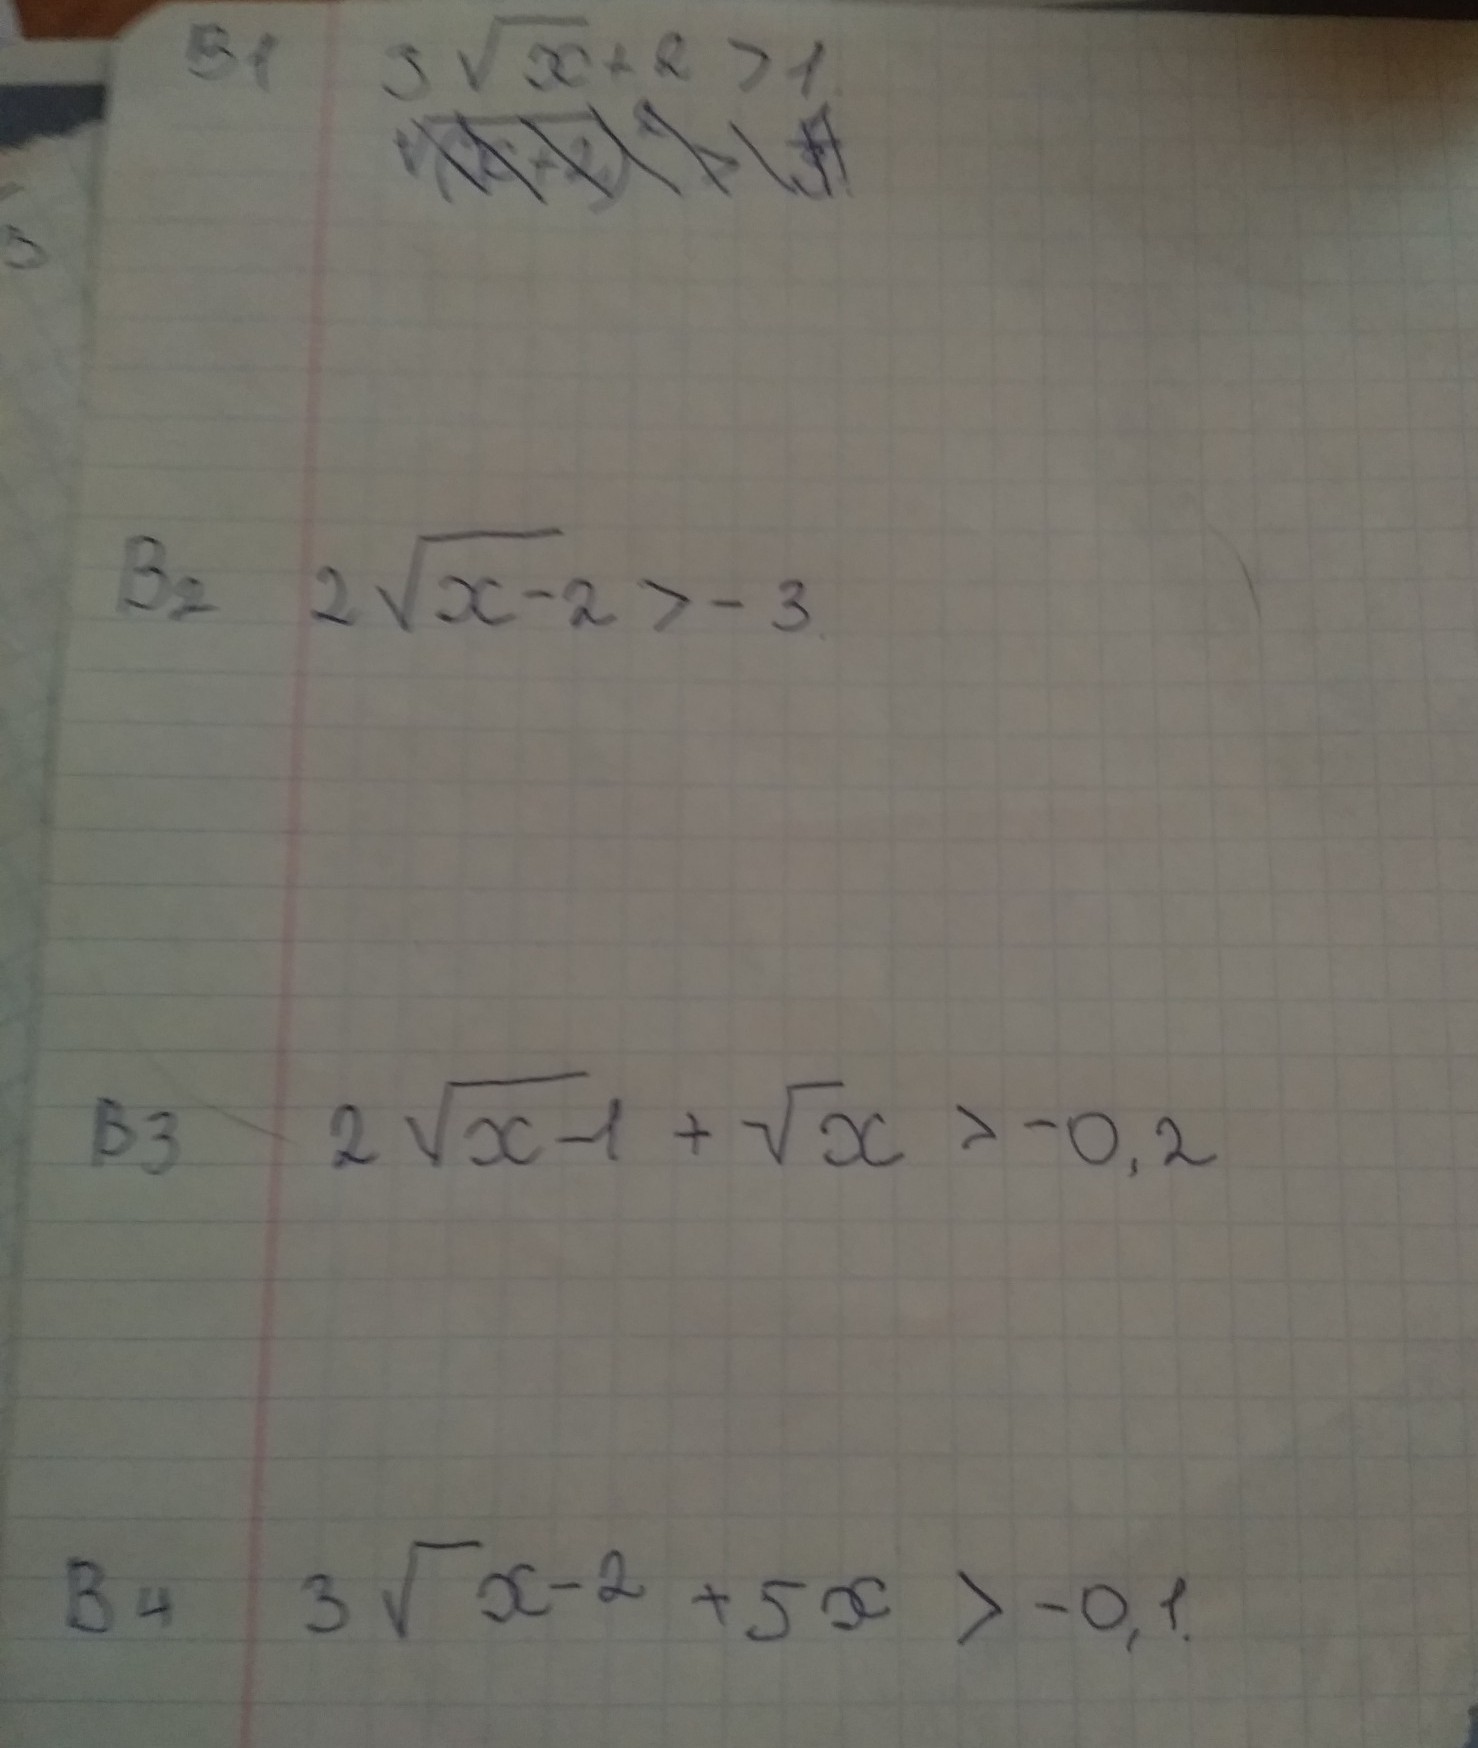 B1 3√x+2 >1
B2 2√x-2 >-3
B3 2√x-1 + √x > -0,2
B4 3√x-2 +5x > -0,1.